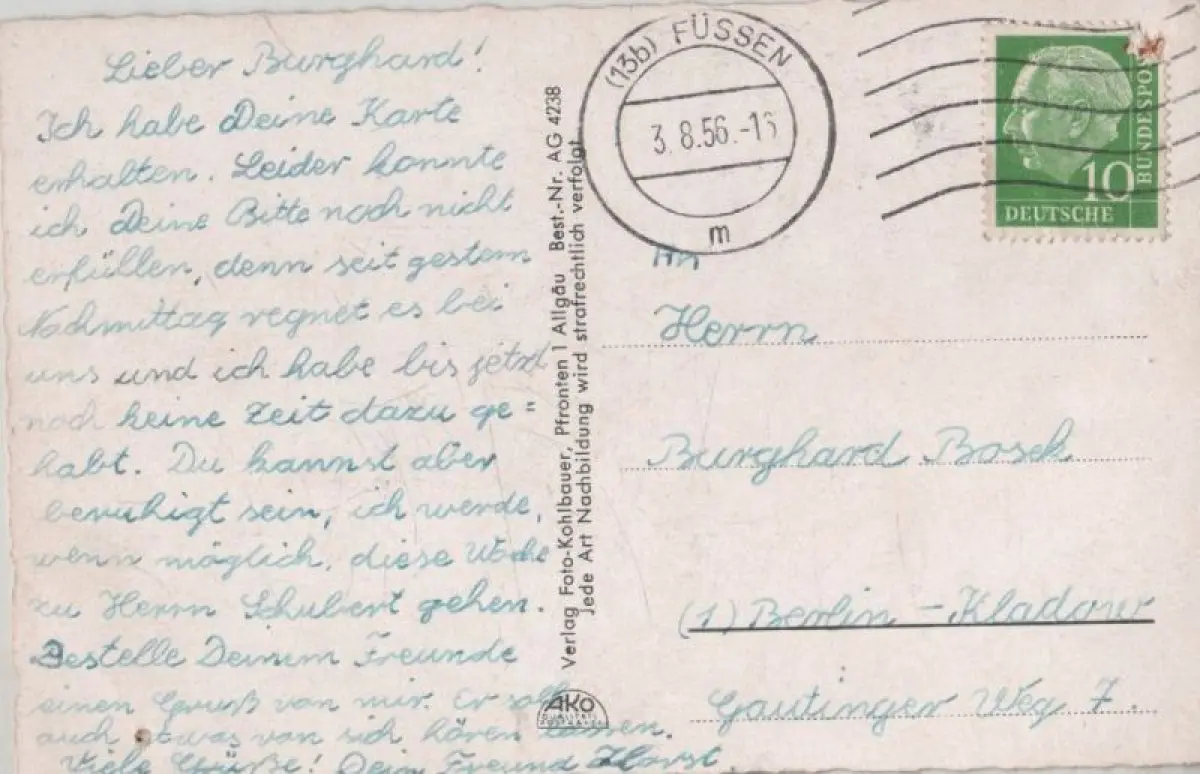 Lieber Burghard!
Ich habe Deine Karte
erhalten. Leider konnte
ich Deine Bitte noch nicht
erfüllen, denn seit gestern
Nachmittag regnet es bei
uns und ich habe bis jetzt
noch keine Zeit dazu ge=
habt. Du kannst aber
beruhigt sein, ich werde,
wenn möglich, diese Woche
zu Herrn Schubert gehen.
Bestelle Deinem Freunde
einen Gruß von mir. Er soll
auch etwas von sich hören lassen.
Viele Grüße! Dein Freund Horst
Verlag Foto-Kohlbauer, Pfronten 1 Allgäu Best.-Nr. AG 4238
Jede Art Nachbildung wird strafrechtlich verfolgt
AKO
(13b) FÜSSEN
3.8.56.-1
m
10
DEUTSCHE
BUNDESPOST
An
Herrn
Burghard Bosek
(1) Berlin - Kladow
Gautinger Weg 7.